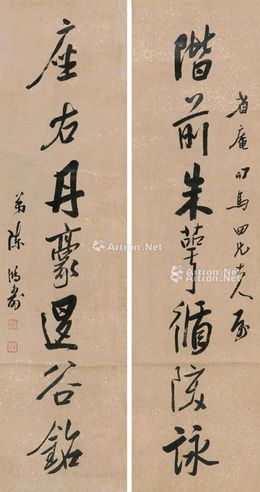 省庵司馬四兄大人屬
階前朱萼循陔詠
座右丹豪谷銘
弟陳鴻壽
Artron.Net
Artron.Net